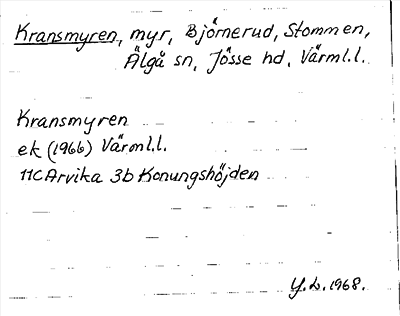 Kransmyren, myr, Björnerud, Stommen,
Älgå sn, Jösse hd, Värml.l.
Kransmyren
ek (1966) Värml.l.
11C Arvika 3b Konungshöjden
Y.L. 1968.